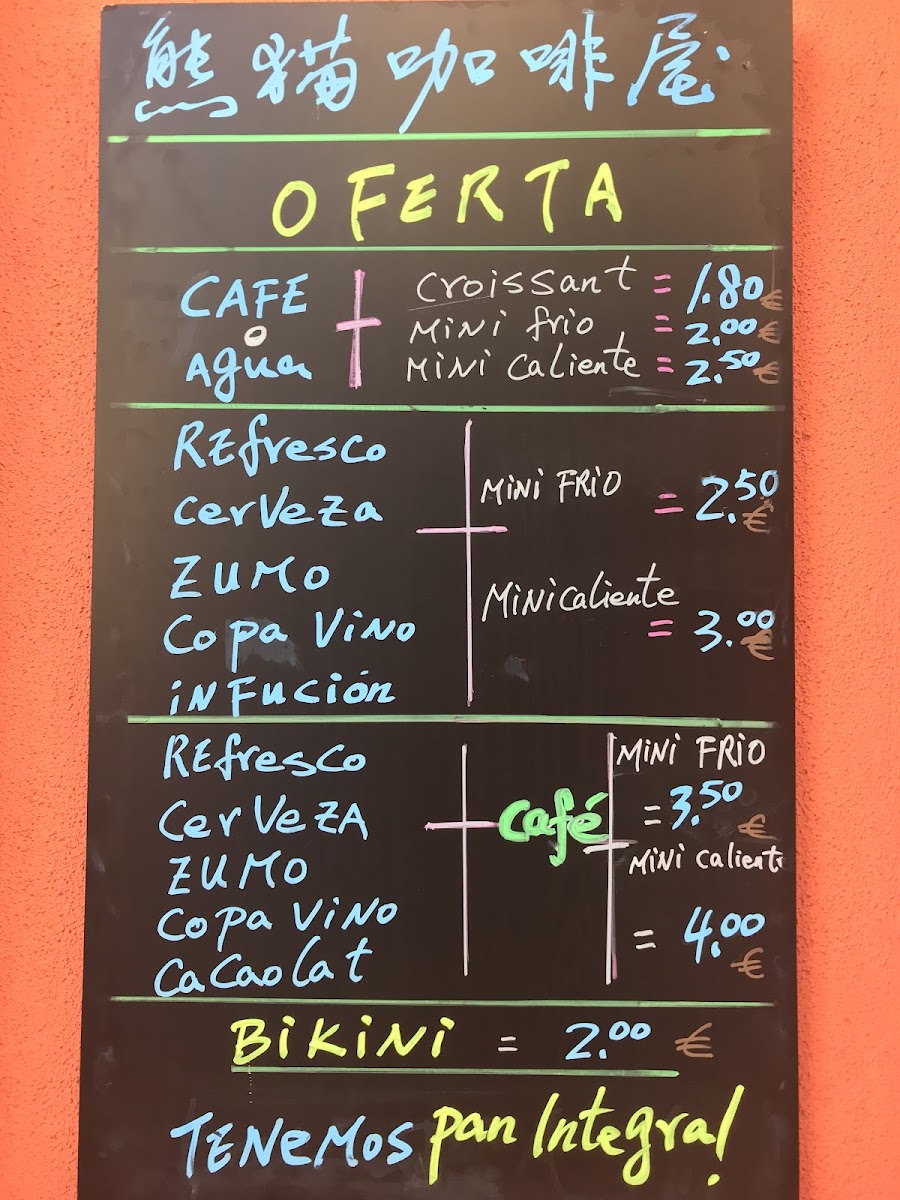 熊猫咖啡屋
OFERTA
CAFE
o
Agua
+
Croissant = 1.80 €
MiNi frio = 2.00 €
MiNi Caliente = 2.50 €
REfresco
CerVeZa
ZUMO
Copa ViNo
iNFución
+
MiNi FRiO = 2.50 €
MiNicaliente = 3.00 €
REfresco
CerVeZA
ZUMO
COPA ViNO
CaCaoLat
+
Café
+
MiNi FRiO
= 3.50 €
MiNi Caliente
= 4.00 €
BiKiNi = 2.00 €
TENeMOS pan Integral!